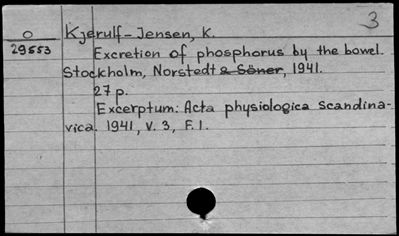 3
O Kjerulf-Jensen, K.
29553 Excretion of phosphorus by the bowel.
Stockholm, Norstedt & Söner, 1941.
27 p.
Excerptum: Acta physiologica scandina-
vica. 1941, V. 3, F. 1.